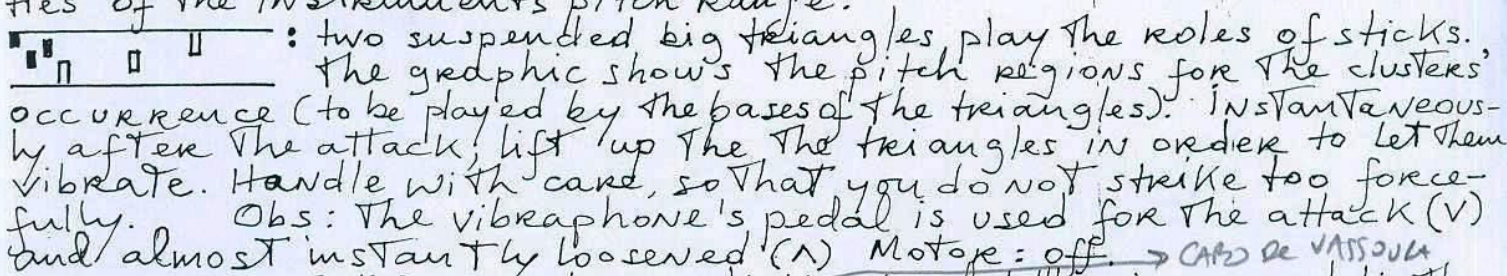 ties of the instruments pitch range.
: two suspended big triangles play the roles of sticks.
The graphic shows the pitch regions for the clusters'
occurrence (to be played by the bases of the triangles). Instantaneous-
ly after the attack, lift up the the triangles in order to let them
vibrate. Handle with care, so that you do not strike too force-
fully. Obs: The vibraphone's pedal is used for the attack (V)
and almost instantly loosened (Λ) Motore: off. → CABO DE VASSOURA